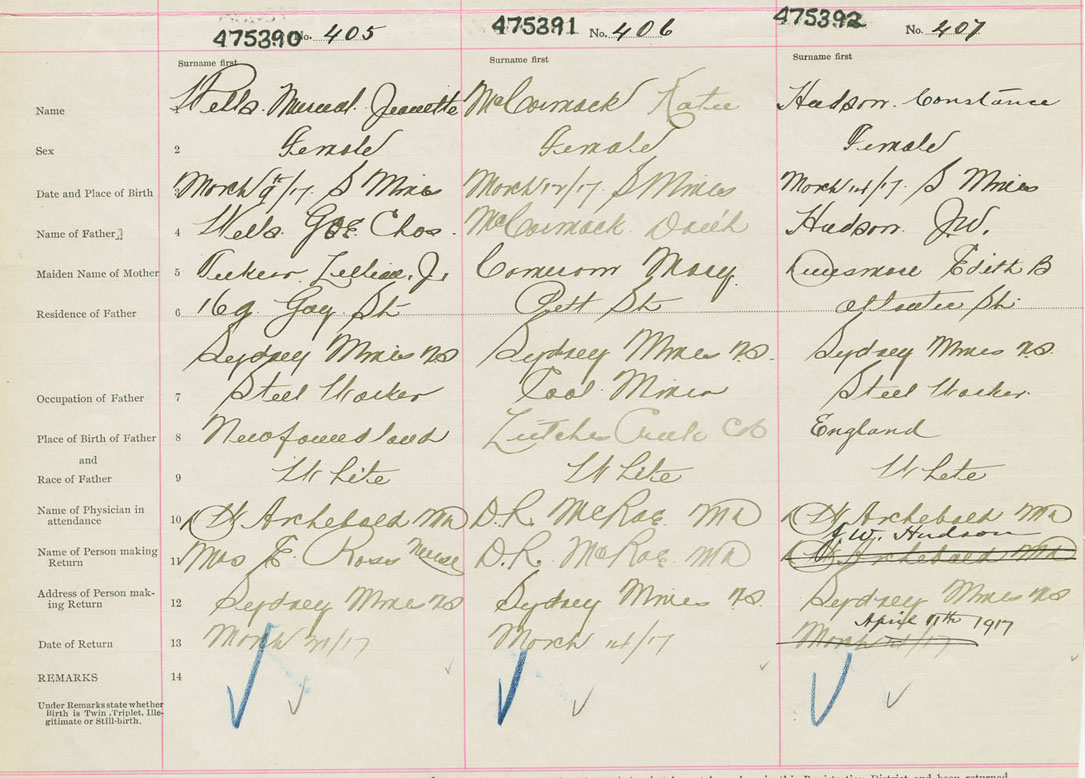 475390 No. 405 475391 No. 406 475392 No. 407
Surname first Surname first Surname first
Name 1 Wells. Muriel Jeanette McCormack Katie Hudson. Constance
Sex 2 Female Female Female
Date and Place of Birth 3 March 9th/17. S Mines March 12/17. S Mines March 14/17. S Mines
Name of Father 4 Wells. Geo. Chas. McCormack Hudson. J.W.
Maiden Name of Mother 5 Lillian. J. Cameron Mary. Edith B
Residence of Father 6 169. Gay. St Pitt St Atlantic St.
Sydney Mines N.S Sydney Mines N.S. Sydney Mines N.S.
Occupation of Father 7 Steel Worker Coal Miner Steel Worker.
Place of Birth of Father 8 Newfoundland Leitches Creek CB England
and
Race of Father 9 White White White
Name of Physician in
attendance 10 W Archebald MD D.R. McRae. MD W Archebald MD
J.W. Hudson
Name of Person making
Return 11 Mrs E. Ross Nurse D.R. McRae. MD W Archebald MD
Address of Person mak-
ing Return 12 Sydney Mines NS Sydney Mines N.S. Sydney Mines NS
April 11th 1917
Date of Return 13 March /17 March /17 March /17
REMARKS 14
Under Remarks state whether
Birth is Twin, Triplet, Ille-
gitimate or Still-birth.